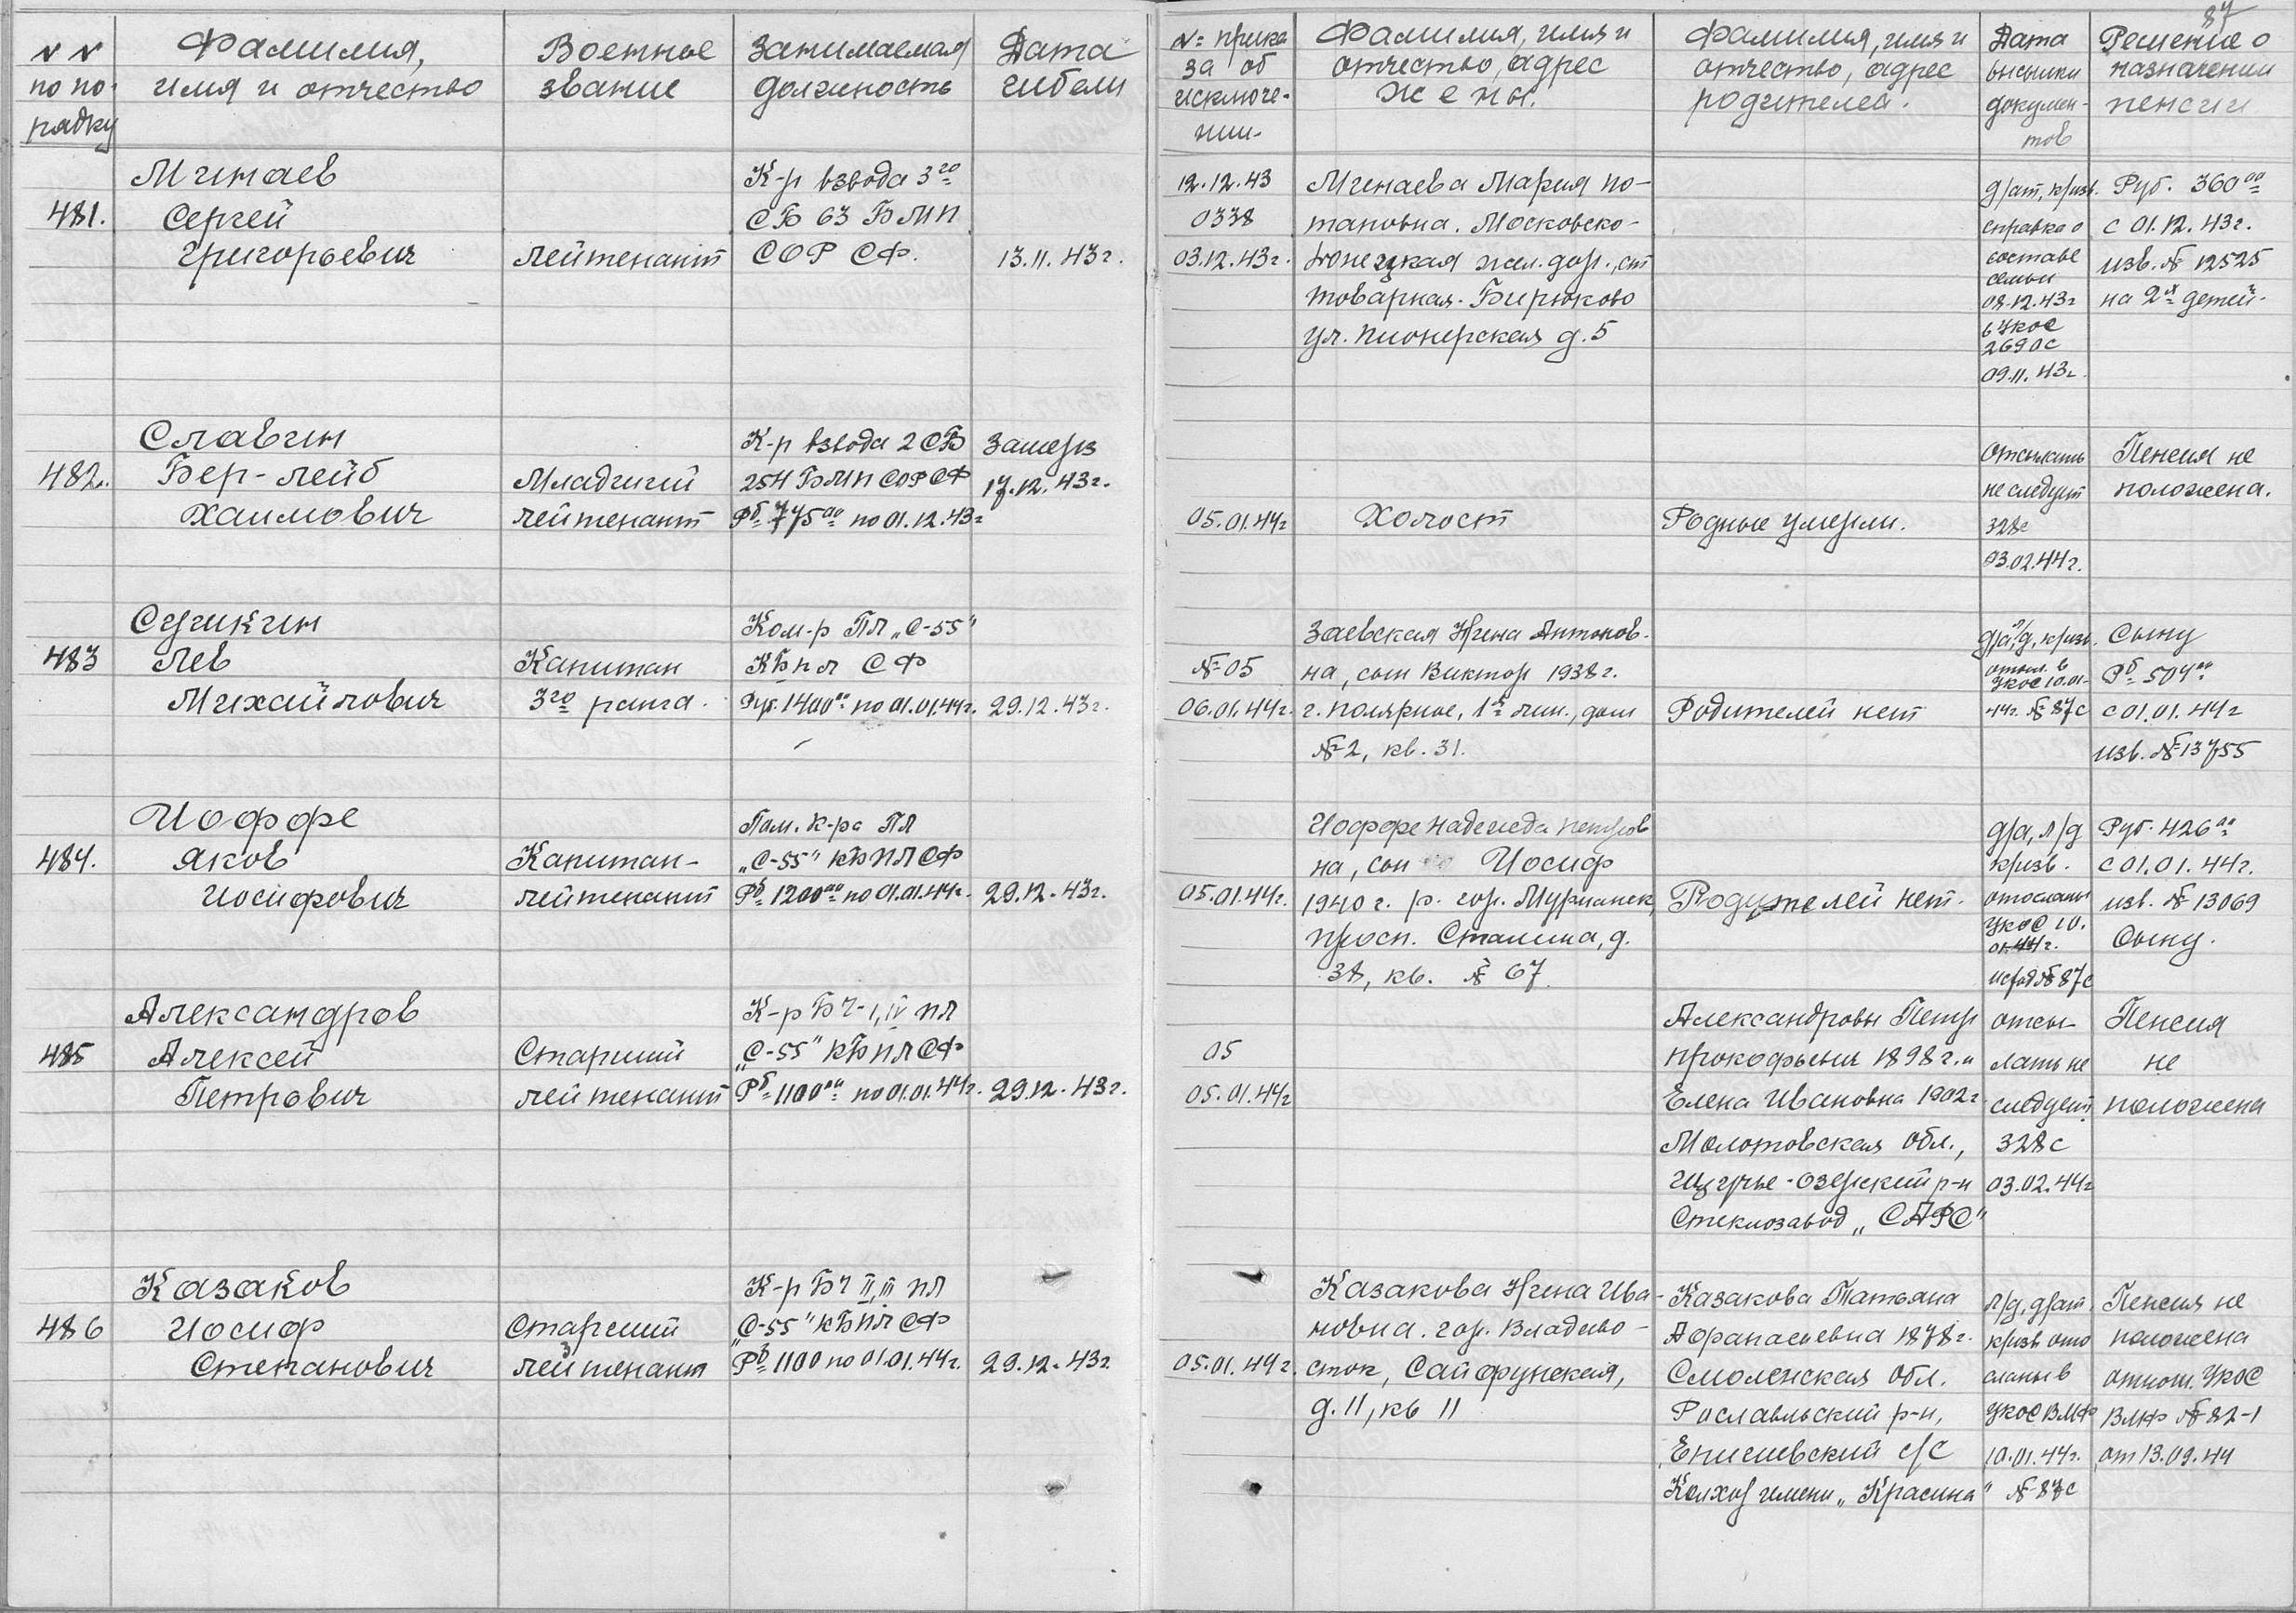 87
№ №
по по-
рядку
Фамилия,
имя и отчество
Военное
звание
Занимаемая
должность
Дата
гибели
№ прика
за об
исключе-
нии.
Фамилия, имя и
отчество, адрес
жены.
Фамилия, имя и
отчество, адрес
родителей.
Дата
высылки
докумен-
тов
Решение о
назначении
пенсии
481.
Минаев
Сергей
Григорьевич
лейтенант
К-р взвода 3го
СБ 63 БМП
СОР СФ.
13.11.43г.
12.12.43
0338
03.12.43г.
Минаева Мария По-
таповна. Московско-
Донецкая жел. дор., ст
товарная. Бирюково
ул. Пионерская д.5
д/ат, к/изв.
справка о
составе
семьи
08.12.43г
в УКОС
2690с
09.11.43г.
Руб. 360 00
с 01.12.43г.
изв. № 12525
на 2х детей.
482.
Славин
Бер-Лейб
Хаимович
Младший
лейтенант
К-р взвода 2 СБ
254 БМП СОР СФ
Рб 775 00 по 01.12.43г
Замерз
17.12.43г.
05.01.44г
Холост
Родные умерли.
Отсылать
не следует
328с
03.02.44г.
Пенсия не
положена.
483
Сушкин
Лев
Михайлович
Капитан
3го ранга.
Ком-р ПЛ „С-55"
КБПЛ СФ
Руб. 1400 00 по 01.01.44г.
29.12.43г.
№ 05
06.01.44г.
Заевская Нина Антонов-
на, сын Виктор 1938г.
г. Полярное, 1я лин., дом
№ 2, кв. 31.
Родителей нет
отосл. в
УКОС 10.01-
44г. № 87с
Сыну
Рб 504 00
с 01.01.44г
изв. № 13755
484.
Иоффе
Яков
Иосифович
Капитан-
лейтенант
Пом. к-ра ПЛ
„С-55" КБПЛ СФ
Рб 1200 00 по 01.01.44г.
29.12.43г.
05.01.44г.
Иоффе Надежда Петров
на, сын Иосиф
1940г. р. гор. Мурманск,
просп. Сталина, д.
38, кв. № 67.
Родителей нет.
д/а, л/д
к/изв.
отосланы
УКОС 10.
01.44г.
исход № 87с
Руб. 426 00
с 01.01.44г.
изв. № 13069
Сыну.
485
Александров
Алексей
Петрович
Старший
лейтенант
К-р БЧ-I, IV ПЛ
„С-55" КБПЛ СФ
Рб 1100 00 по 01.01.44г.
29.12.43г.
05
05.01.44г
Александровы Петр
Прокофьевич 1898г. и
Елена Ивановна 1902г.
Молотовская обл.,
Щучье-Озерский р-н
Стеклозавод „САРС"
отсы-
лать не
следует.
328с
03.02.44г
Пенсия
не
положена
486
Казаков
Иосиф
Степанович
Старший
лейтенант
К-р БЧ II, III ПЛ
„С-55" КБПЛ СФ
Рб 1100 по 01.01.44г.
29.12.43г
05.01.44г.
Казакова Нина Ива-
новна. гор. Владиво-
сток, Сайфунская,
д. 11, кв 11
Казакова Татьяна
Афанасьевна 1878г.
Смоленская обл.
Рославльский р-н,
с/с
Колхоз имени „Красина"
л/д, д/ат,
к/изв ото
сланы в
УКОС ВМФ
10.01.44г.
№ 87с
Пенсия не
положена
отнош. УКОС
ВМФ № 82-1
от 13.09.44